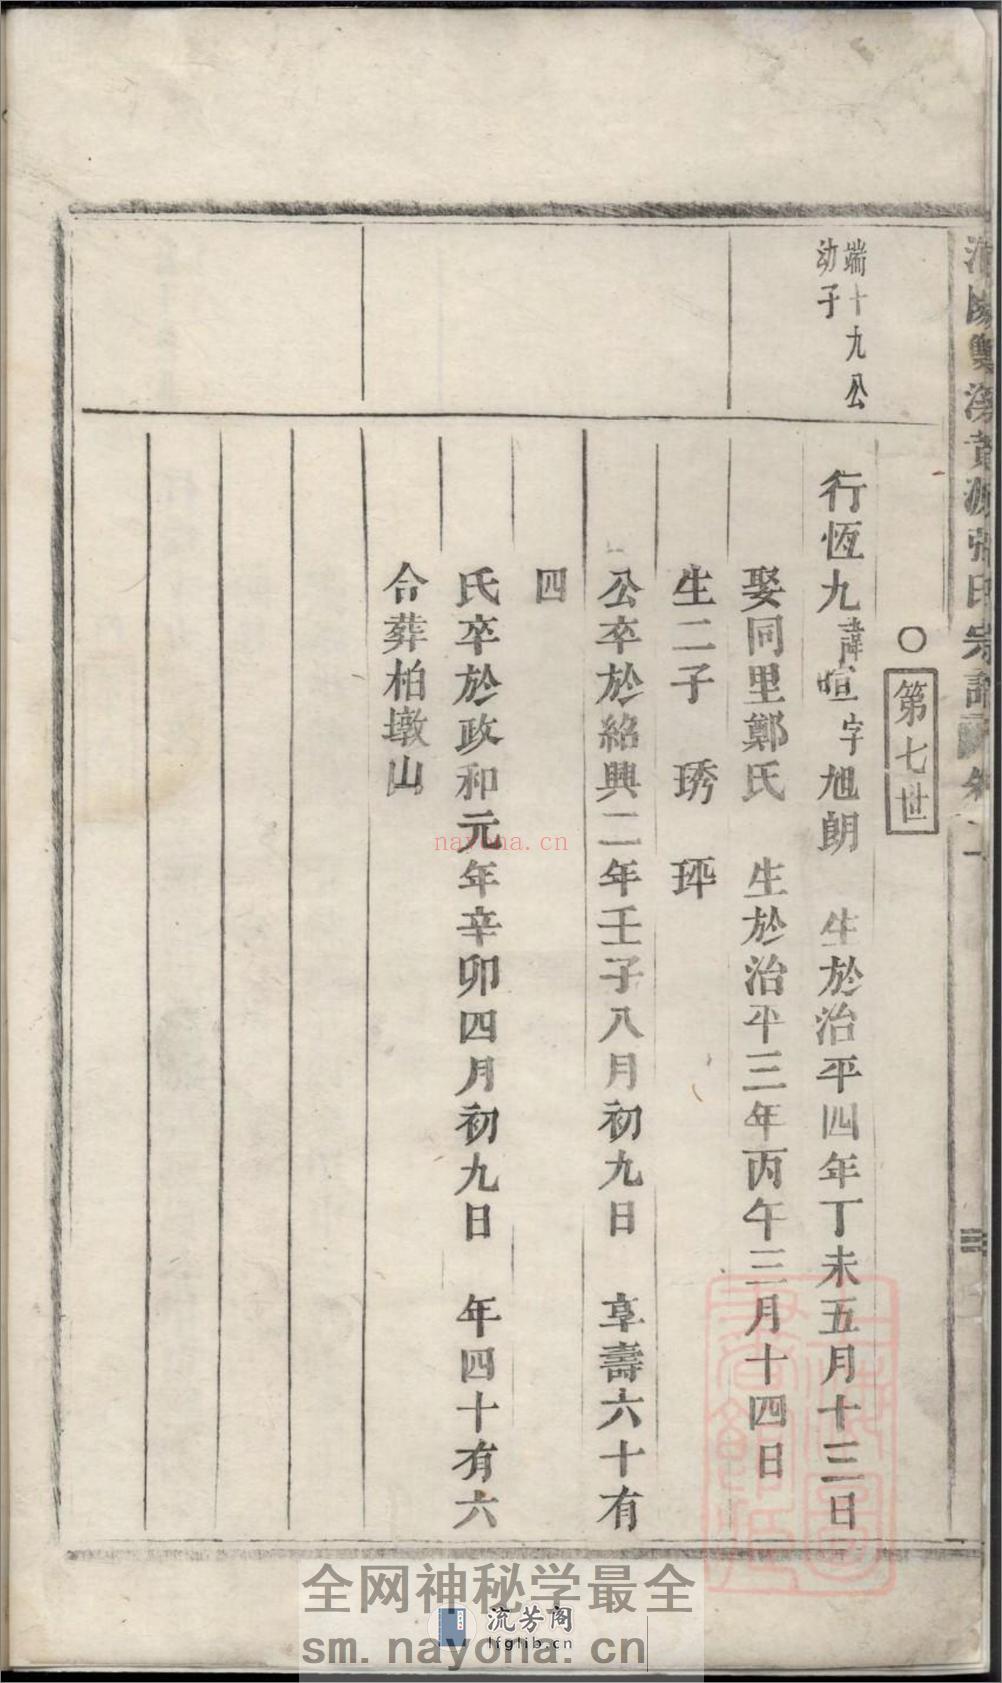 第七世
端十九公
幼子
行恆九諱暄字旭朗 生於治平四年丁未五月十三日
娶同里鄭氏 生於治平三年丙午三月十四日
生二子 琇 玶
公卒於紹興二年壬子八月初九日 享壽六十有
四
氏卒於政和元年辛卯四月初九日 年四十有六
合葬柏墩山
nayona.cn
全网神秘学最全
流芳阁
lfglib.cn
sm.nayona.cn